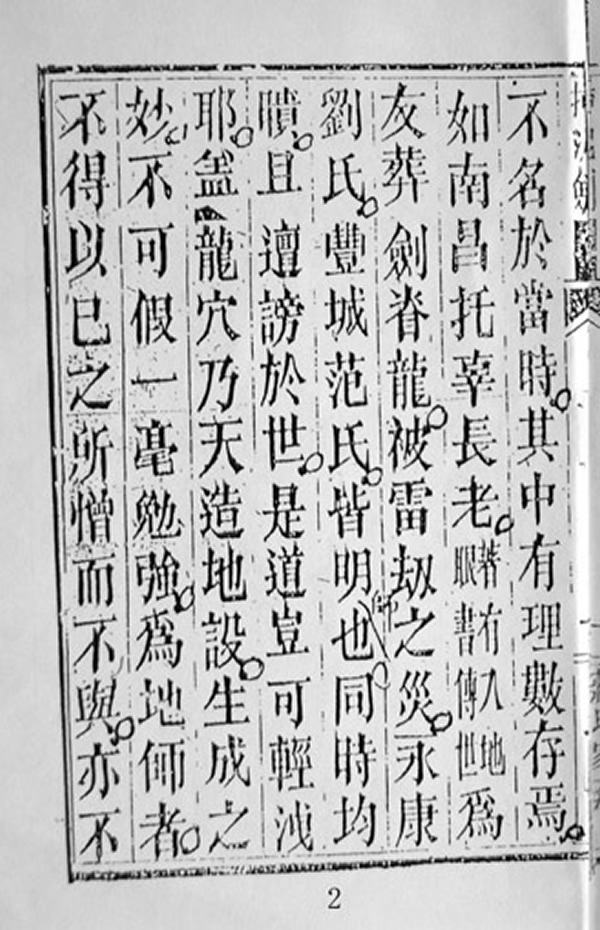 不名於當時。其中有理數存焉。
如南昌托辜長老。著有入地眼書傳世爲
友葬劍脊龍。被雷刼之災。永康
劉氏。豐城范氏。皆明師也。同時均
瞶。且遭謗於世。是道豈可輕洩
耶。盖龍穴乃天造地設。生成之
妙。不可假一毫勉強。爲地師者。
不得以已之所憎而不與。亦不
2